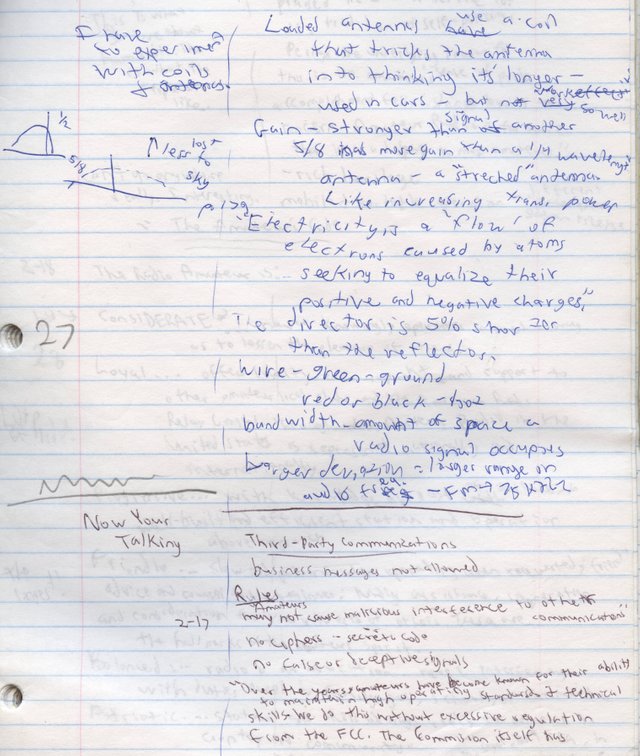 I have
to experiment
with coils
& antennas.
1/2
5/8
↑ less lost to sky
p. 129
27
Loaded antennas use a coil
that tricks the antenna
into thinking its longer -
used in cars - but not very so well
Gain - stronger signal than another
5/8 has more gain than a 1/4 wavelength
antenna - a "streched" antenna
Like increasing trans. power
"Electricity is a 'flow' of
electruns caused by atoms
seeking to equalize their
positive and negative charges."
The director is 5% shorter
than the reflector.
wire - green - ground
red or black - hot
bandwidth - amount of space a
radio signal occupies
Larger deviation = larger range in
audio freq. - FM → 75 kHz
Now Your
Talking
Third-Party communications
business messages not allowed
Rules
Amateurs
may not cause malicious interference to other communications
2-17
no ciphers - secret code
no false or deceptive signals
"Over the years amateurs have become known for their ability
to maintain high operating standards & technical
skills we do this without excessive regulation
from the FCC. The Commision itself has